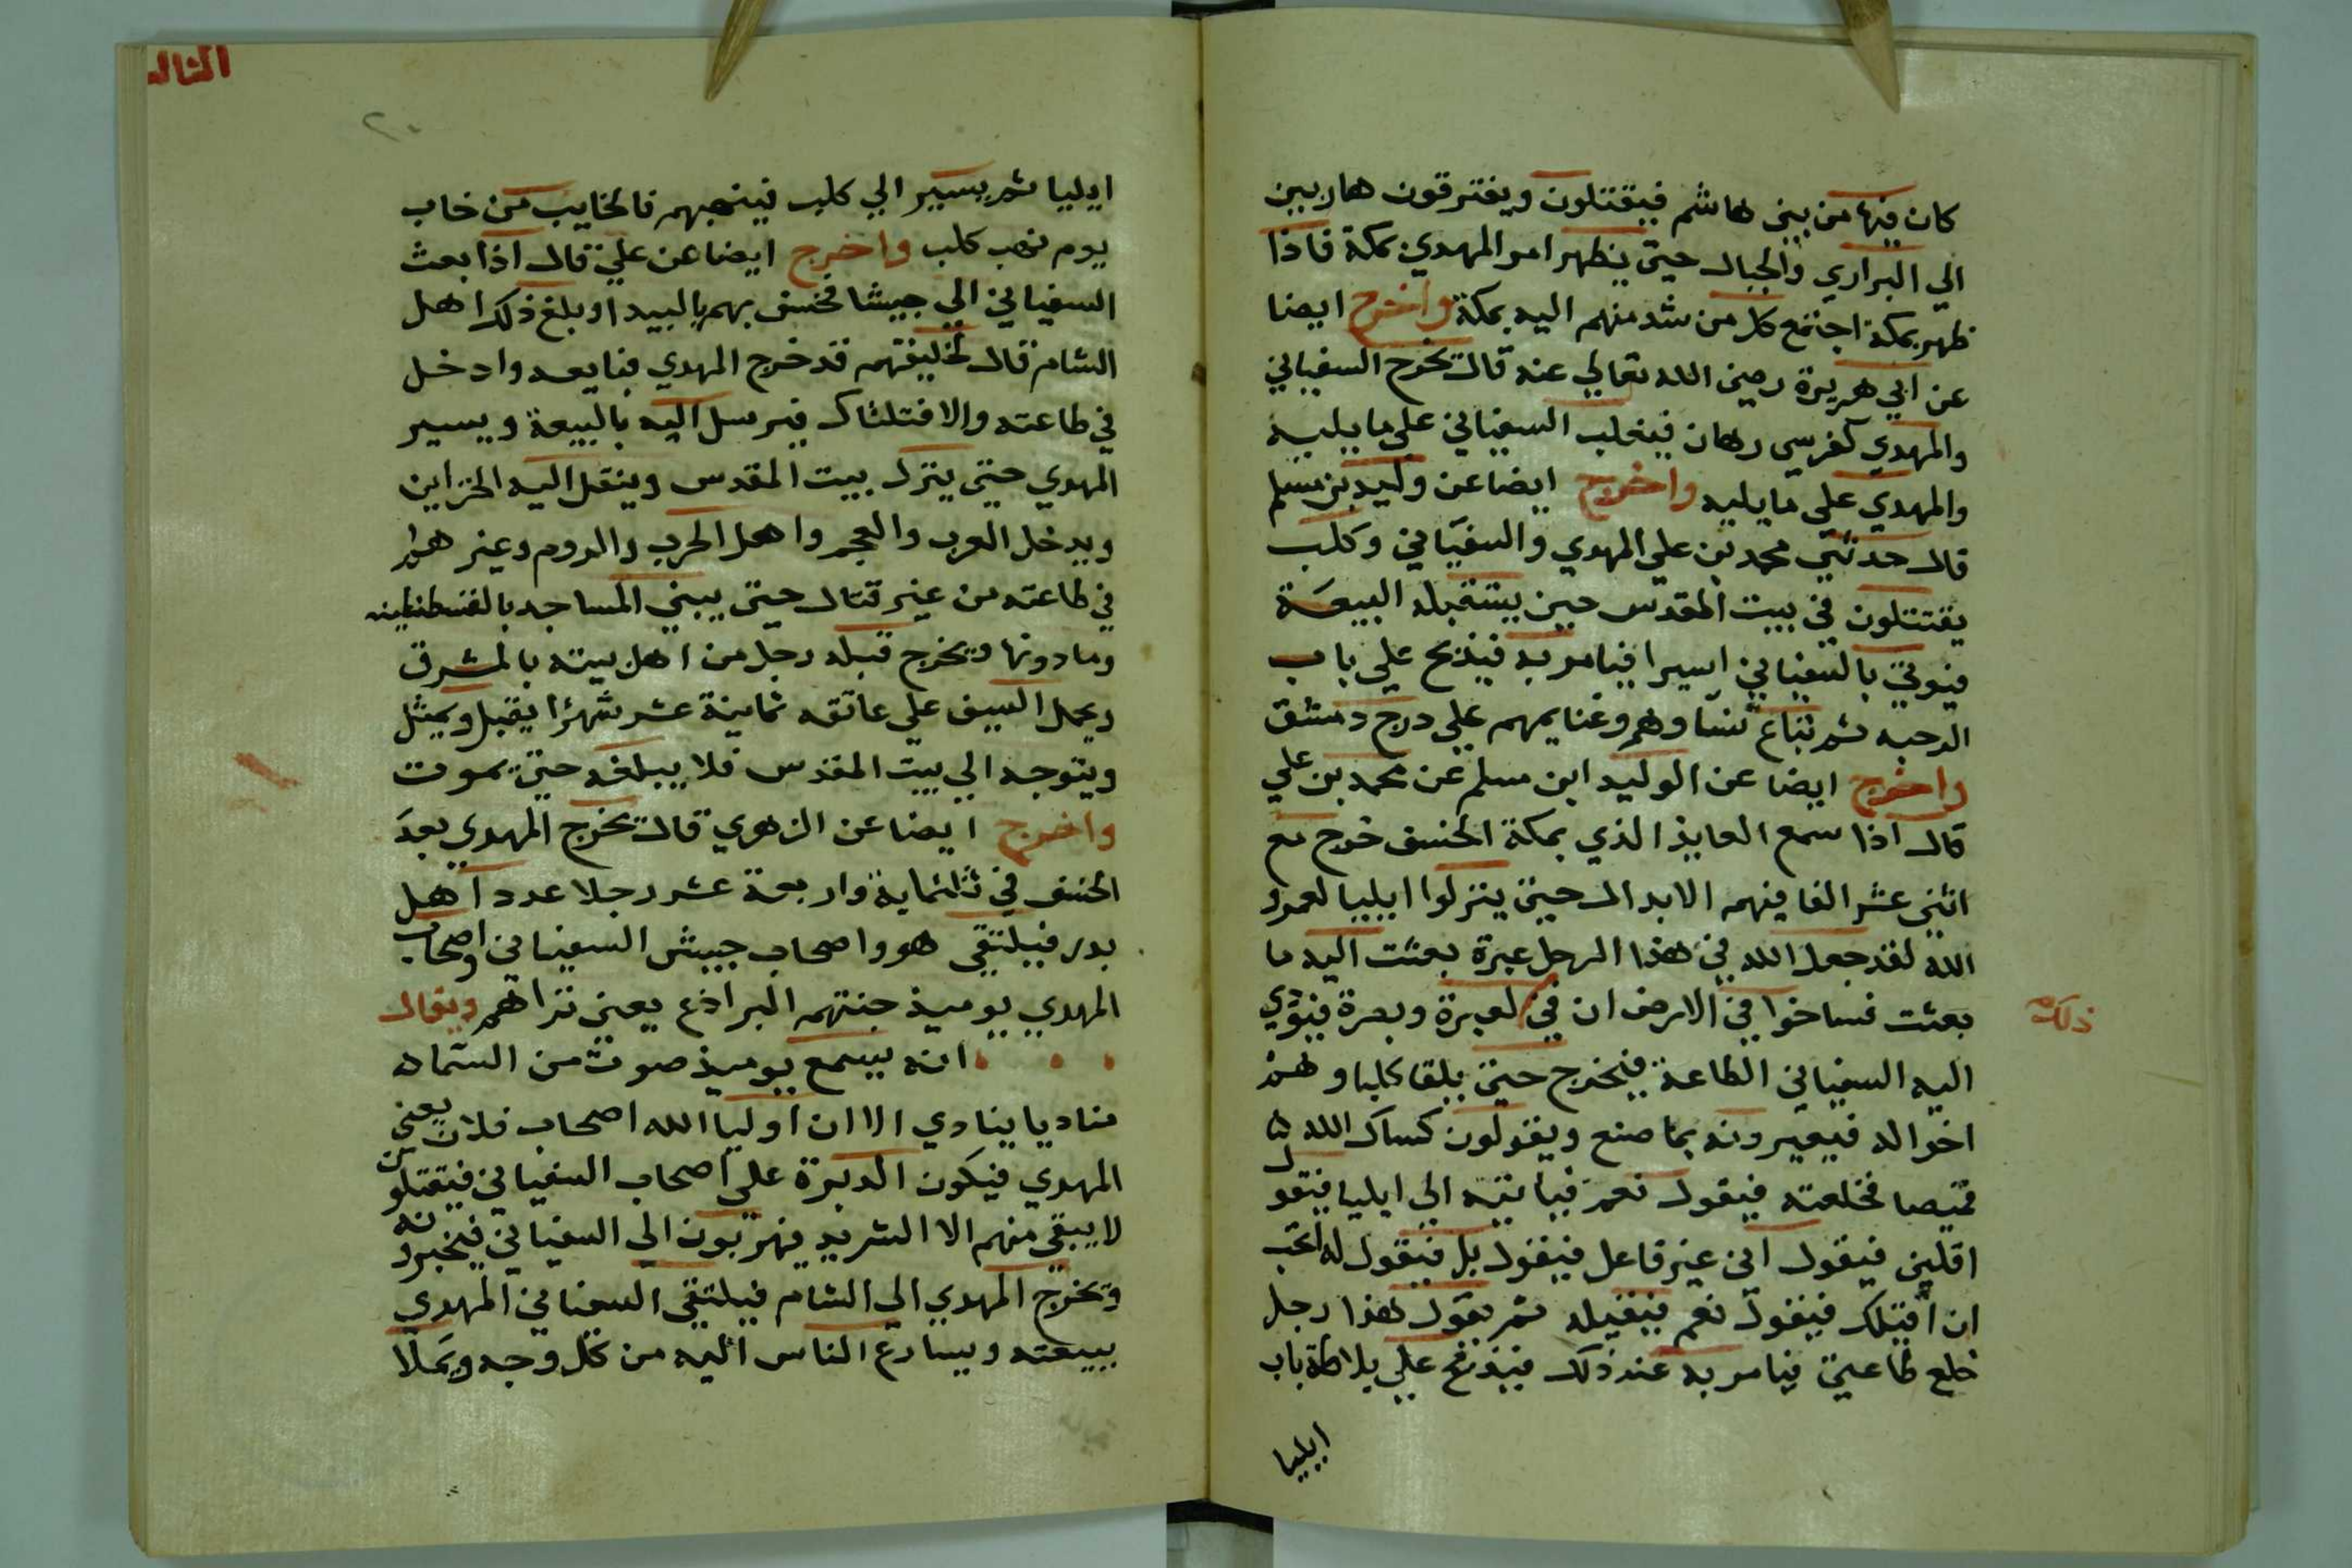 كان فيها من بني هاشم فيقتلون ويفترقون هاربين
الي البراري والجبال حتي يظهر امر المهدي بمكة فاذا
ظهر بمكة اجتمع كل من شد منهم اليه بمكة واخرج ايضا
عن ابي هريرة رضي الله تعالي عنه قال يخرج السفياني
والمهدي كفرسي رهان فيغلب السفياني علي ما يليه
والمهدي علي ما يليه واخرج ايضا عن وليد بن مسلم
قال حدثني محمد بن علي المهدي والسفياني وكلب
يقتتلون في بيت المقدس حين يستقبله البيعة
فيوتي بالسفياني اسيرا فيامر به فيذبح علي باب
الرحبه ثم تباع نساوهم وغنايمهم علي درج دمشق
واخرج ايضا عن الوليد ابن مسلم عن محمد بن علي
قال اذا سمع العايذ الذي بمكة الخسف خرج مع
اثني عشر الفا فيهم الابدال حتي ينزلوا ايليا
الله لقد جعل الله في هذا الرجل عبرة بعثت اليه ما
بعثت فساخوا في الارض ان في لعبرة وبصرة فيودي
ذلك
اليه السفياني الطاعة فيخرج حتي يلقا كلبا وهم
اخواله فيعيرونه بما صنع ويقولون كساك الله
قميصا فخلعته فيقول نعم فياتيه الي ايليا فيقول
اقلني فيقول اني غير فاعل فيقول بل فيقول له اتحب
ان اقيلك فيقول نعم فيقيله ثم يقول هذا رجل
خلع طاعتي فيامر به عند ذلك فيذبح علي بلاطة باب
ايليا
ايليا ثم يسير الي كلب فينهبهم فالخايب من خاب
يوم نهب كلب واخرج ايضا عن علي قال اذا بعث
السفياني الي جيشا فخسف بهم بالبيدا وبلغ ذلك اهل
الشام قال لخليفتهم قد خرج المهدي فبايعه وادخل
في طاعته والا قتلناك فيرسل اليه بالبيعة ويسير
المهدي حتي ينزل بيت المقدس وينقل اليه الخزاين
ويدخل العرب والعجم واهل الحرب والروم وغيرهم
في طاعته من غير قتال حتي يبني المساجد بالقسطنطينه
وما دونها ويخرج قبله رجل من اهل بيته بالمشرق
ويحمل السيف علي عاتقه ثمانية عشر شهرا يقتل ويمثل
ويتوجه الي بيت المقدس فلا يبلغه حتي يموت
واخرج ايضا عن الزهري قال يخرج المهدي بعد
الخسف في ثلثماية واربعة عشر رجلا عدد اهل
بدر فيلتقي هو واصحاب جيش السفياني واصحاب
المهدي يوميذ جنتهم البراذع يعني تراهم ويقال
انه يسمع يوميذ صوت من السماء
مناديا ينادي الا ان اوليا الله اصحاب فلان يعني
المهدي فيكون الدبرة علي اصحاب السفياني فيقتلون
لا يبقي منهم الا الشريد فيهربون الي السفياني فيخبرونه
ويخرج المهدي الي الشام فيلتقي السفياني المهدي
ببيعته ويسارع الناس اليه من كل وجه ويملا